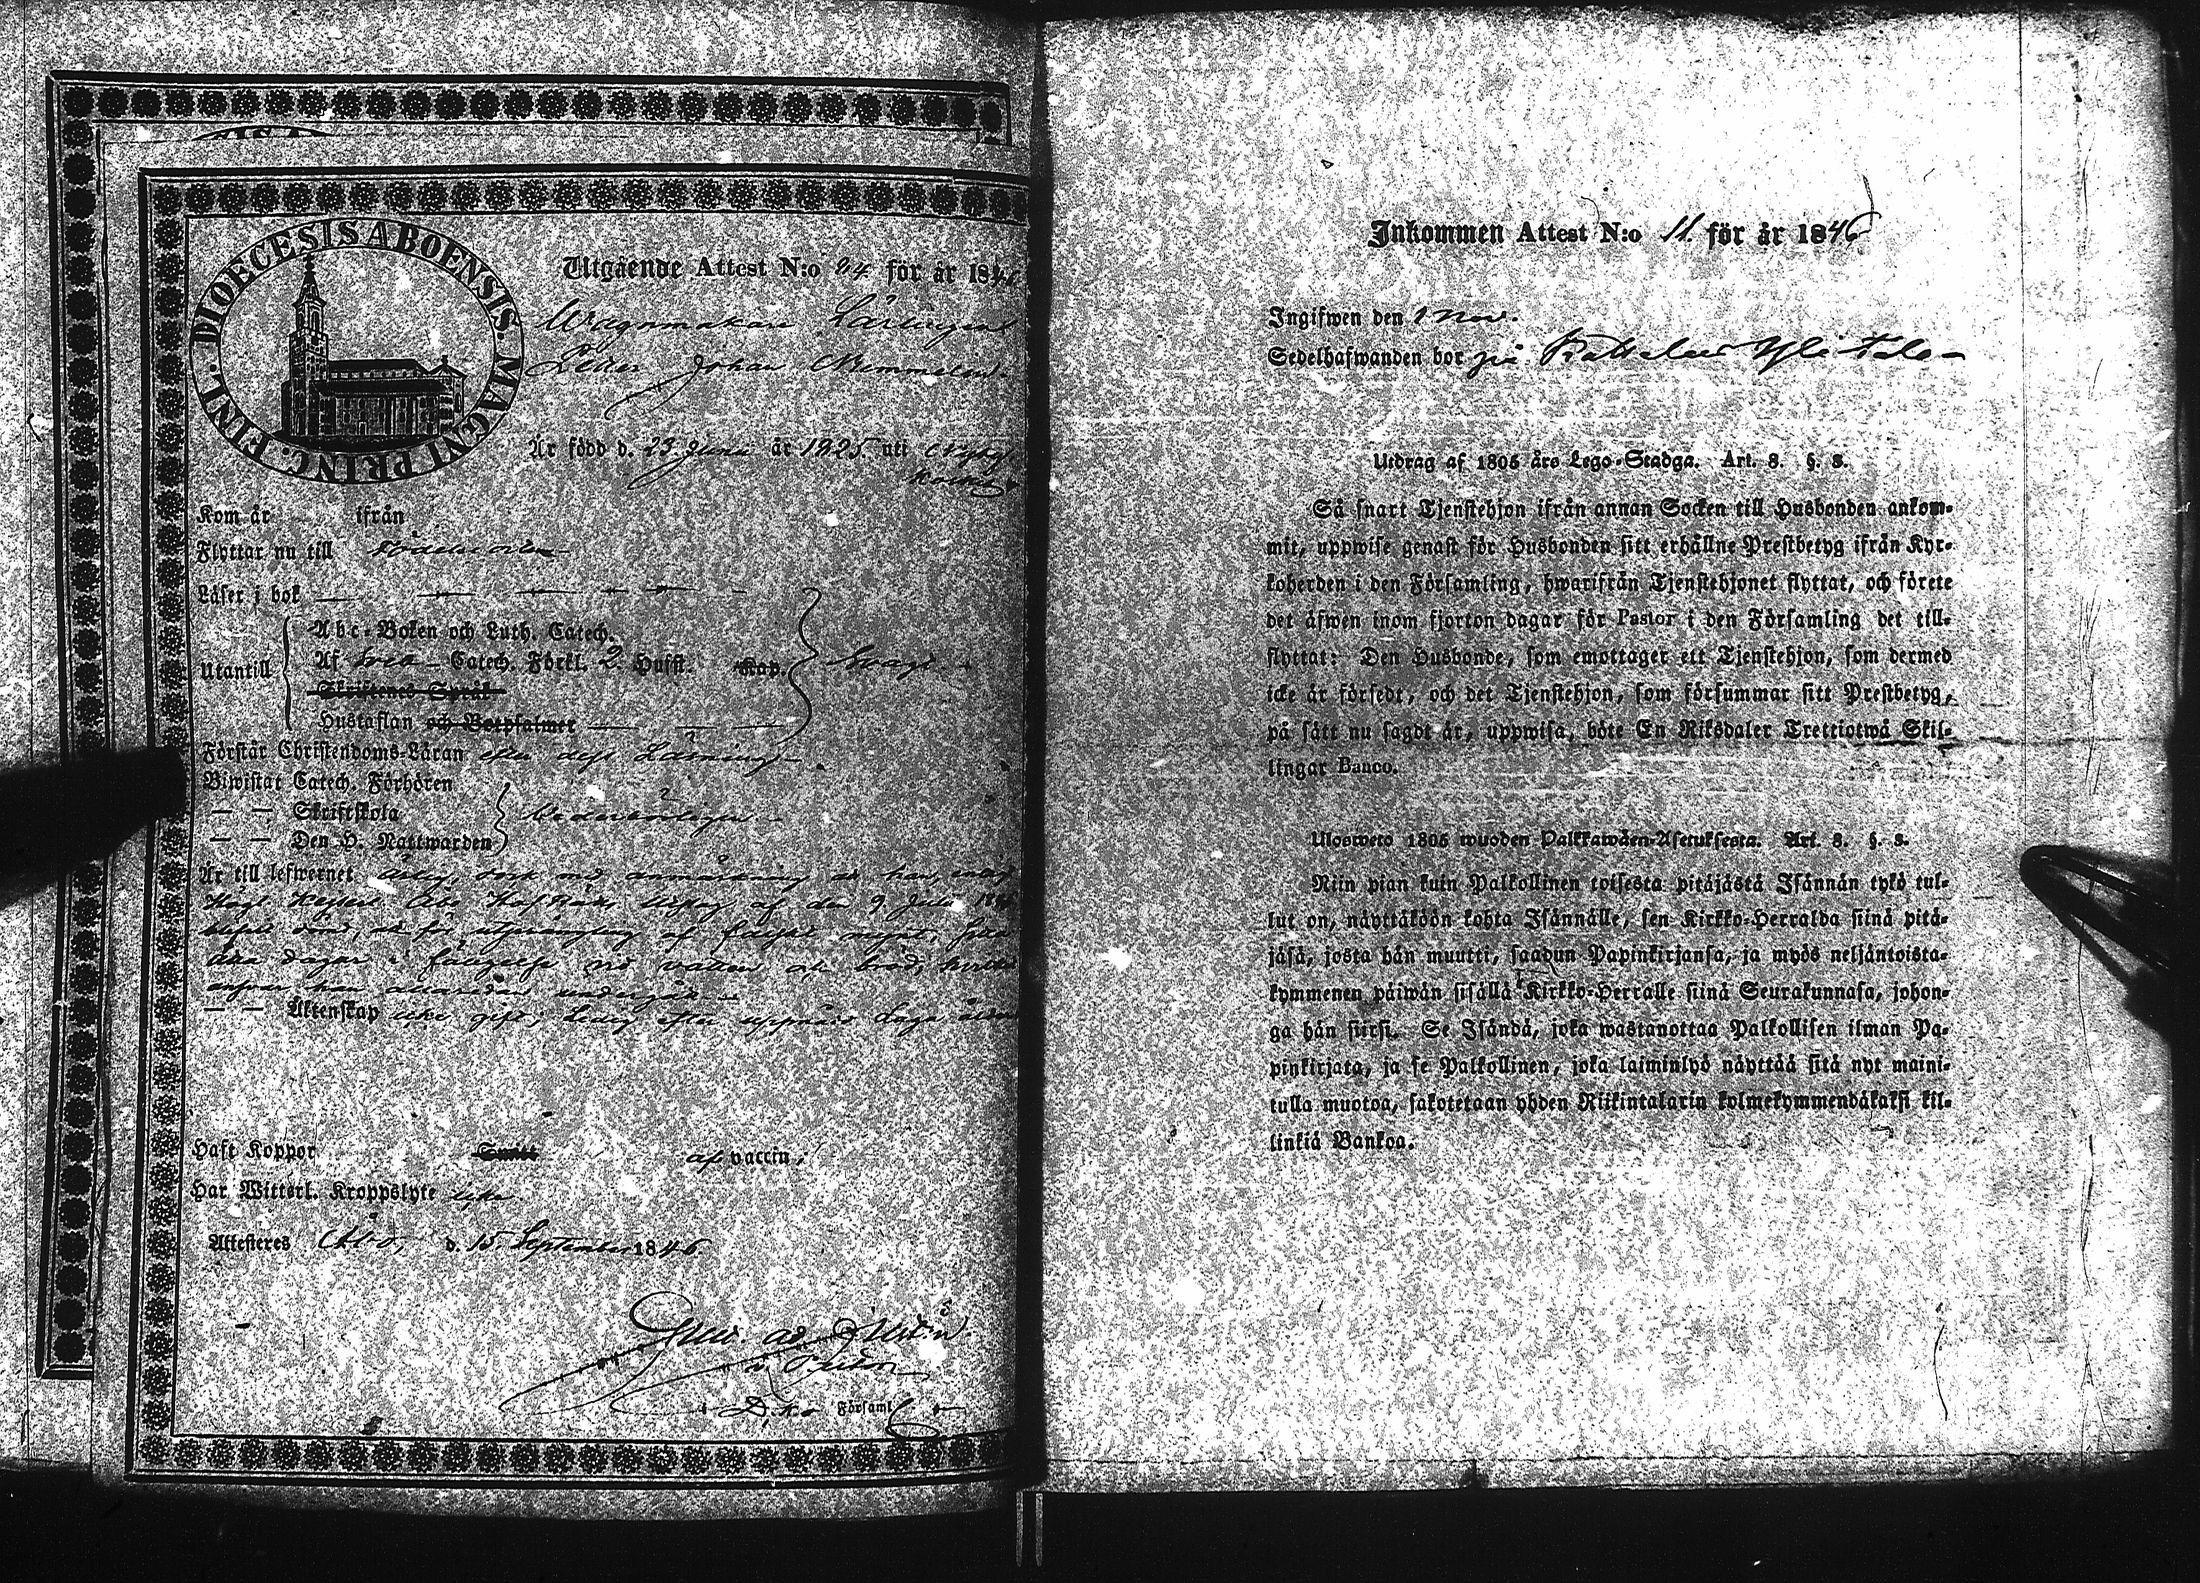 DIOECESIS ABOENSIS. MAGNI PRINC. FINL.
Utgående Attest N:o 24 för år 1846
Wagnmakare Lärlingen
Johan
Är född d. 23 Juni år 1825 uti
Kom år ifrån
Flyttar nu till Födelseorten
Läser i bok
Utantill
Abc-Boken och Luth. Catech.
Af Sveb Catech. Förkl. 2. Hufst. Kap.
Skriftenes Språk
Hustaflan och Botpsalmer
Svagt
Förstår Christendoms-Läran efter dess Läsning
Biwistat Catech. Förhören
— — Skriftskola
— — Den H. Nattwarden
Wederbörligen
Är till lefwernet ärlig, dock med anmärkning at han, enligt
Kejserl. Åbo Hof Rätts Utslag af den 9 Juli 1846
blifvit dömd, at för utprångling af falskt mynt,
dagar i fängelse vid vatten och bröd,
han undergått
— — Äktenskap icke gift, ledig efter uppnådd laga ålder
Haft Koppor Smitt af vaccin.
Har Witterl. Kroppslyte icke
Attesteres Åbo, d. 15 September 1846.
v. Pastor
Församl.
Inkommen Attest N:o 11. för år 1846
Ingifwen den 1 Nov.
Sedelhafwanden bor på
Utdrag af 1805 års Lego-Stadga. Art. 3. §. 3.
Så snart Tjenstehjon ifrån annan Socken till Husbonden ankom-
mit, uppwise genast för Husbonden sitt erhållne Prestbetyg ifrån Kyr-
koherden i den Församling, hwarifrån Tjenstehjonet flyttat, och förete
det äfwen inom fjorton dagar för Pastor i den Församling det till-
flyttat: Den Husbonde, som emottager ett Tjenstehjon, som dermed
icke är försedt, och det Tjenstehjon, som försummar sitt Prestbetyg,
på sätt nu sagdt är, uppwisa, böte En Riksdaler Trettiotwå Skil-
lingar Banco.
Ulosweto 1805 wuoden Palkkawäen-Asetuksesta. Art. 3. §. 3.
Niin pian kuin Palkollinen toisesta pitäjästä Isännän tykö tul-
lut on, näyttäköön kohta Isännälle, sen Kirkko-Herralda siinä pitä-
jäsä, josta hän muutti, saadun Papinkirjansa, ja myös neljäntoista-
kymmenen päiwän sisällä Kirkko-Herralle siinä Seurakunnasa, johon-
ga hän siirsi. Se Isändä, joka wastanottaa Palkollisen ilman Pa-
pinkirjata, ja se Palkollinen, joka laiminlyö näyttää sitä nyt maini-
tulla muotoa, sakotetaan yhden Riikintalarin kolmekymmendäkaksi kil-
linkiä Bankoa.